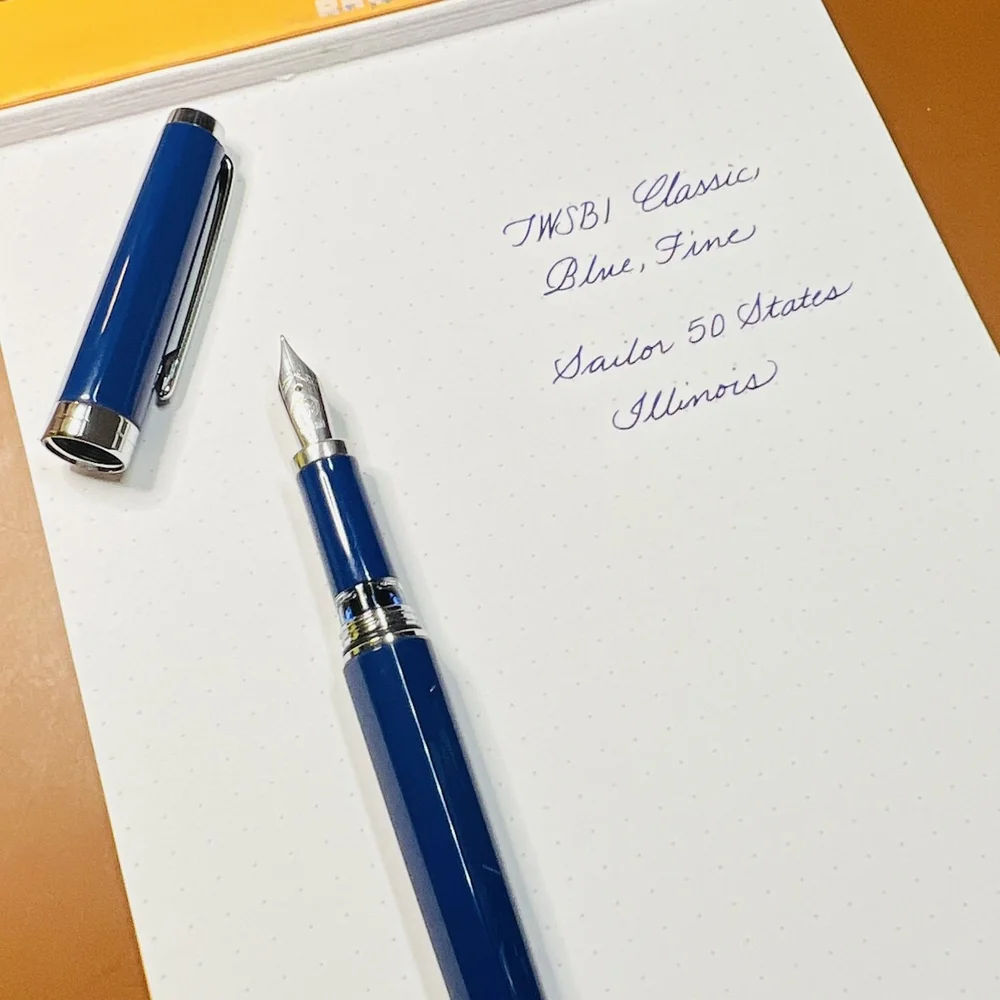 TWSBI Classic,
Blue, Fine
Sailor 50 States
Illinois